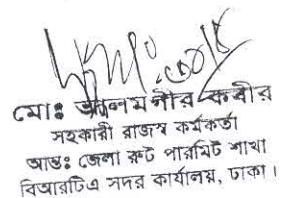 মোঃ আলমগীর কবীর
সহকারী রাজস্ব কর্মকর্তা
আন্তঃ জেলা রুট পারমিট শাখা
বিআরটিএ সদর কার্যালয়, ঢাকা।